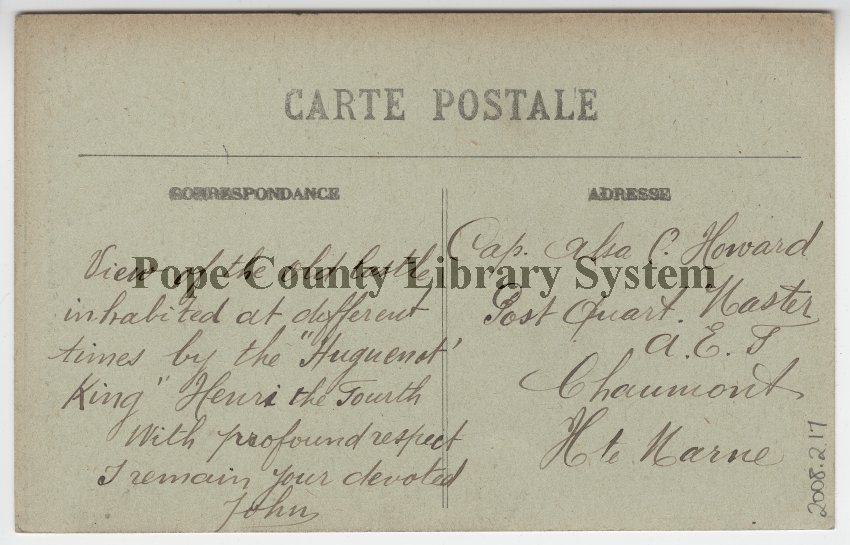 CARTE POSTALE
CORRESPONDANCE
ADRESSE
View of the old castle
inhabited at different
times by the "Huguenot
King" Henri the Fourth
With profound respect
I remain your devoted
John
Cap. Alsa C. Howard
Post Quart. Master
A. E. F
Chaumont
Hte Marne
Pope County Library System
2008.217